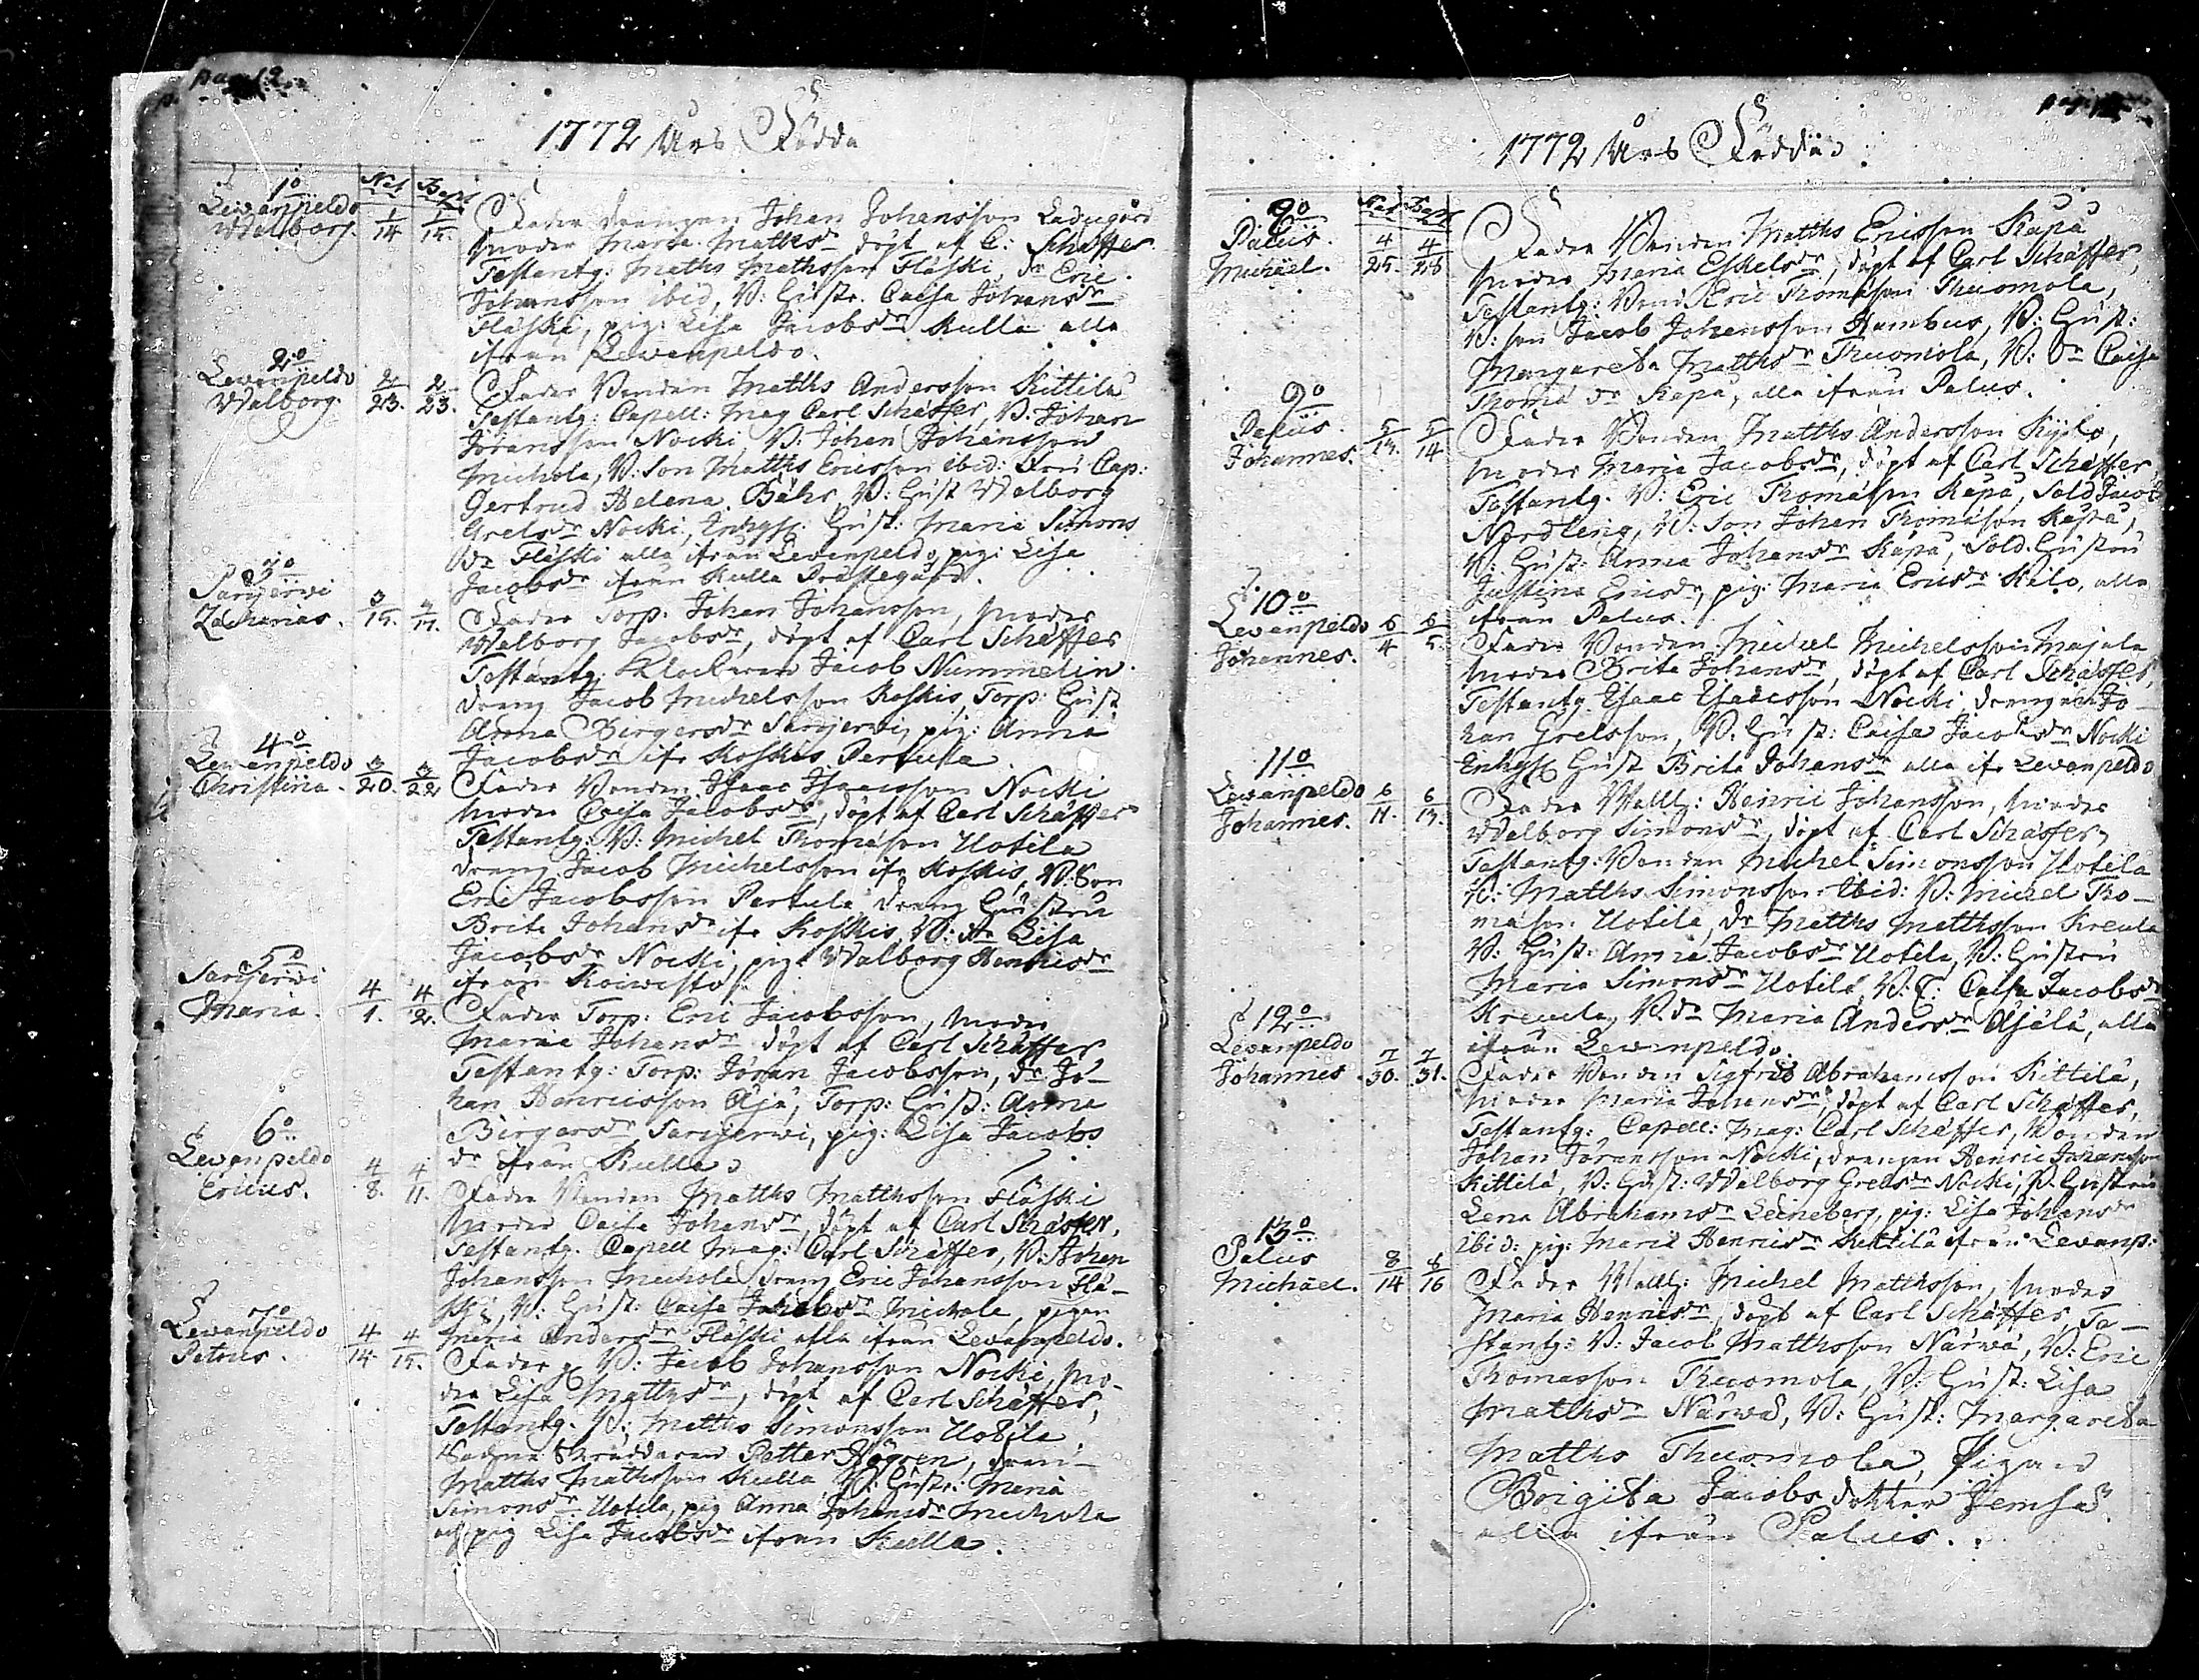 pag. 2.
1772 Års Födda
Nat Bapt
1o
Levanpeldo
Walborg.
1/14 1/15.
Fader Drengen Johan Johansson Ladugård
Moder Maria Mathsdr döpt af C: Schæffer
Testantg: Maths Mathsson Fläski, dr Eric
Johansson ibid, B: Hustr. Caisa Johansdr
Fläski, pig: Lisa Jacobsdr Kulla alla
ifrån Levanpeldo.
2o
Levanpeldo
Walborg.
2/23. 2/23.
Fader Bonden Matths Andersson Kittilä
Testantg: Capell: Mag Carl Schæffer, B: Johan
Jöransson Nocki, B: Johan Johansson
Michola, B: Son Matths Ericsson ibid: Fru Cap:
Gertrud Helena Bähr, B: Hust Walborg
Grelsdr Nocki, Hust: Maria Simons
dr Fläski alla ifrån Levanpeldo, pig: Lisa
Jacobsdr ifrån Kulla Prästegård.
3o
Sarjervi
Zacharias.
3/15. 3/17.
Fader Torp: Johan Johansson, Moder
Walborg Jacobsdr, döpt af Carl Schæffer
Testantg: Klockaren Jacob Nummelin
Dreng Jacob Michelsson Koskis, Torp: Hust
Anna Birgersdr Sarjervi, pig: Anna
Jacobsdr ifr Koskis Pertula.
4o
Levanpeldo
Christina.
3/20. 3/22
Fader Bonden Isaac Isaacsson Nocki
Moder Caisa Jacobsdr, döpt af Carl Schæffer
Testantg: B: Michel Thomason Uotila
Dreng Jacob Michelsson ifr Koskis, B: Son
Eric Jacobsson Pertula Dreng Hustru
Brita Johansdr ifr Koskis, B: dr Lisa
Jacobsdr Nocki, pig: Walborg Henricsdr
ifrån Koiwisto.
5o
Sarjerwi
Maria.
4/1. 4/2.
Fader Torp: Eric Jacobsson, Moder
Maria Johansdr döpt af Carl Schæffer
Testantg: Torp: Jöran Jacobsson, dr Jo-
han Henricsson Äjä, Torp: Hust: Anna
Birgersdr Sarjerwi, pig: Lisa Jacobs
dr ifrån Kulla
6o
Levanpeldo
Ericus.
4/8. 4/11.
Fader Bonden Matths Matthsson Fläski
Moder Caisa Johansdr, döpt af Carl Schæffer,
Testantg. Capell Mag: Carl Schæffer, B: Johan
Johansson Michola Dreng Eric Johansson Flä-
ski, B: Hust: Caisa Jacobsdr Michola, pigan
Maria Andersdr Fläski alla ifrån Levanpeldo.
7o
Levanpeldo
Petrus.
4/14 4/15.
Fader B: Jacob Johansson Nocki, Mo-
der Lisa Matthsdr, döpt af Carl Schæffer,
Testantg. B: Matths Simonsson Uotila
Sockne Skräddaren Petter Högren, dren-
Matths Mathsson Kulla, B: Hustr: Maria
Simonsdr Uotila, pig Anna Johansdr Michola
och pig Lisa Jacobsdr ifrån Kulla.
1772 Års Födda
Nat Bapt
Palus.
Michael.
4/25. 4/26
Fader Bonden Matths Ericsson Kapa
Moder Maria Eskelsdr, döpt af Carl Schæffer,
Testantg: Bond Eric Thomason Thuomola,
B: son Jacob Johansson Humbus, B: Hust:
Margareta Matthsdr Thuomola, B: Dr Caisa
Thoma dr Kapa, alla ifrån Palus.
9o
Palus.
Johannes.
5/13. 5/14
Fader Bonden Matths Andersson Kylö,
Moder Maria Jacobsdr, döpt af Carl Schæffer,
Testantg. B: Eric Thomason Kapa, Sold Jacob
Nordling, B: Son Johan Thomason Kapa,
B: Hust: Anna Johansdr Kapa, Sold. Hustru
Justina Ericsdr, pig: Maria Ericsdr Kilo, alla
ifrån Palus.
10o
Levanpeldo
Johannes.
6/4 6/5.
Fader Bonden Michel Michelsson Majala
Moder Brita Johansdr, döpt af Carl Schæffer,
Testantg. Esaac Esaacsson Nocki, Drengen Jo-
han Grelsson, B: Hust: Caisa Jacobsdr Nocki
Hust Brita Johansdr alla ifr Levanpeldo
11o
Levanpeldo
Johannes.
6/11. 6/13.
Fader Wallb: Henric Johansson, Moder
Walborg Simonsdr, döpt af Carl Schæffer,
Testantg: Bonden Michel Simonsson Uotila
B: Matths Simonsson Ibid: B: Michel Tho-
mason Uotila, Dr Matths Matthsson Kreula
B: Hust: Anna Jacobsdr Uotila, B: Hustru
Maria Simonsdr Uotila, B: Caisa Jacobsdr
Kreula, B. dr Maria Andersdr Äjälä, alla
ifrån Levanpeldo.
12o
Levanpeldo
Johannes
7/30. 7/31.
Fader Bonden Sigfrid Abrahamsson Kittilä,
Moder Maria Johansdr, döpt af Carl Schæffer,
Testantg: Capell: Mag: Carl Schæffer, Bonden
Johan Jöransson Nocki, Drengen Henric Johansson
Kittilä, B: Hust: Walborg Grelsdr Nocki, B. Hustru
Lena Abrahamsdr Leineberg, pig: Lisa Johansdr
Ibid: pig: Maria Henricsdr Kittilä ifrån Levanp:
13o
Palus
Michael.
8/14 8/16
Fader Wallb: Michel Matthsson, Moder
Maria Henricsdr, döpt af Carl Schæffer, Te-
stantg: B: Jacob Matthsson Närwä, B: Eric
Thomasson Thuomola, B: Hust: Lisa
Matthsdr Närwä, B: Hust: Margareta
Matths Thuomola, Pigan
Brigita Jacobs dotter Jemsä
alla ifrån Palus.